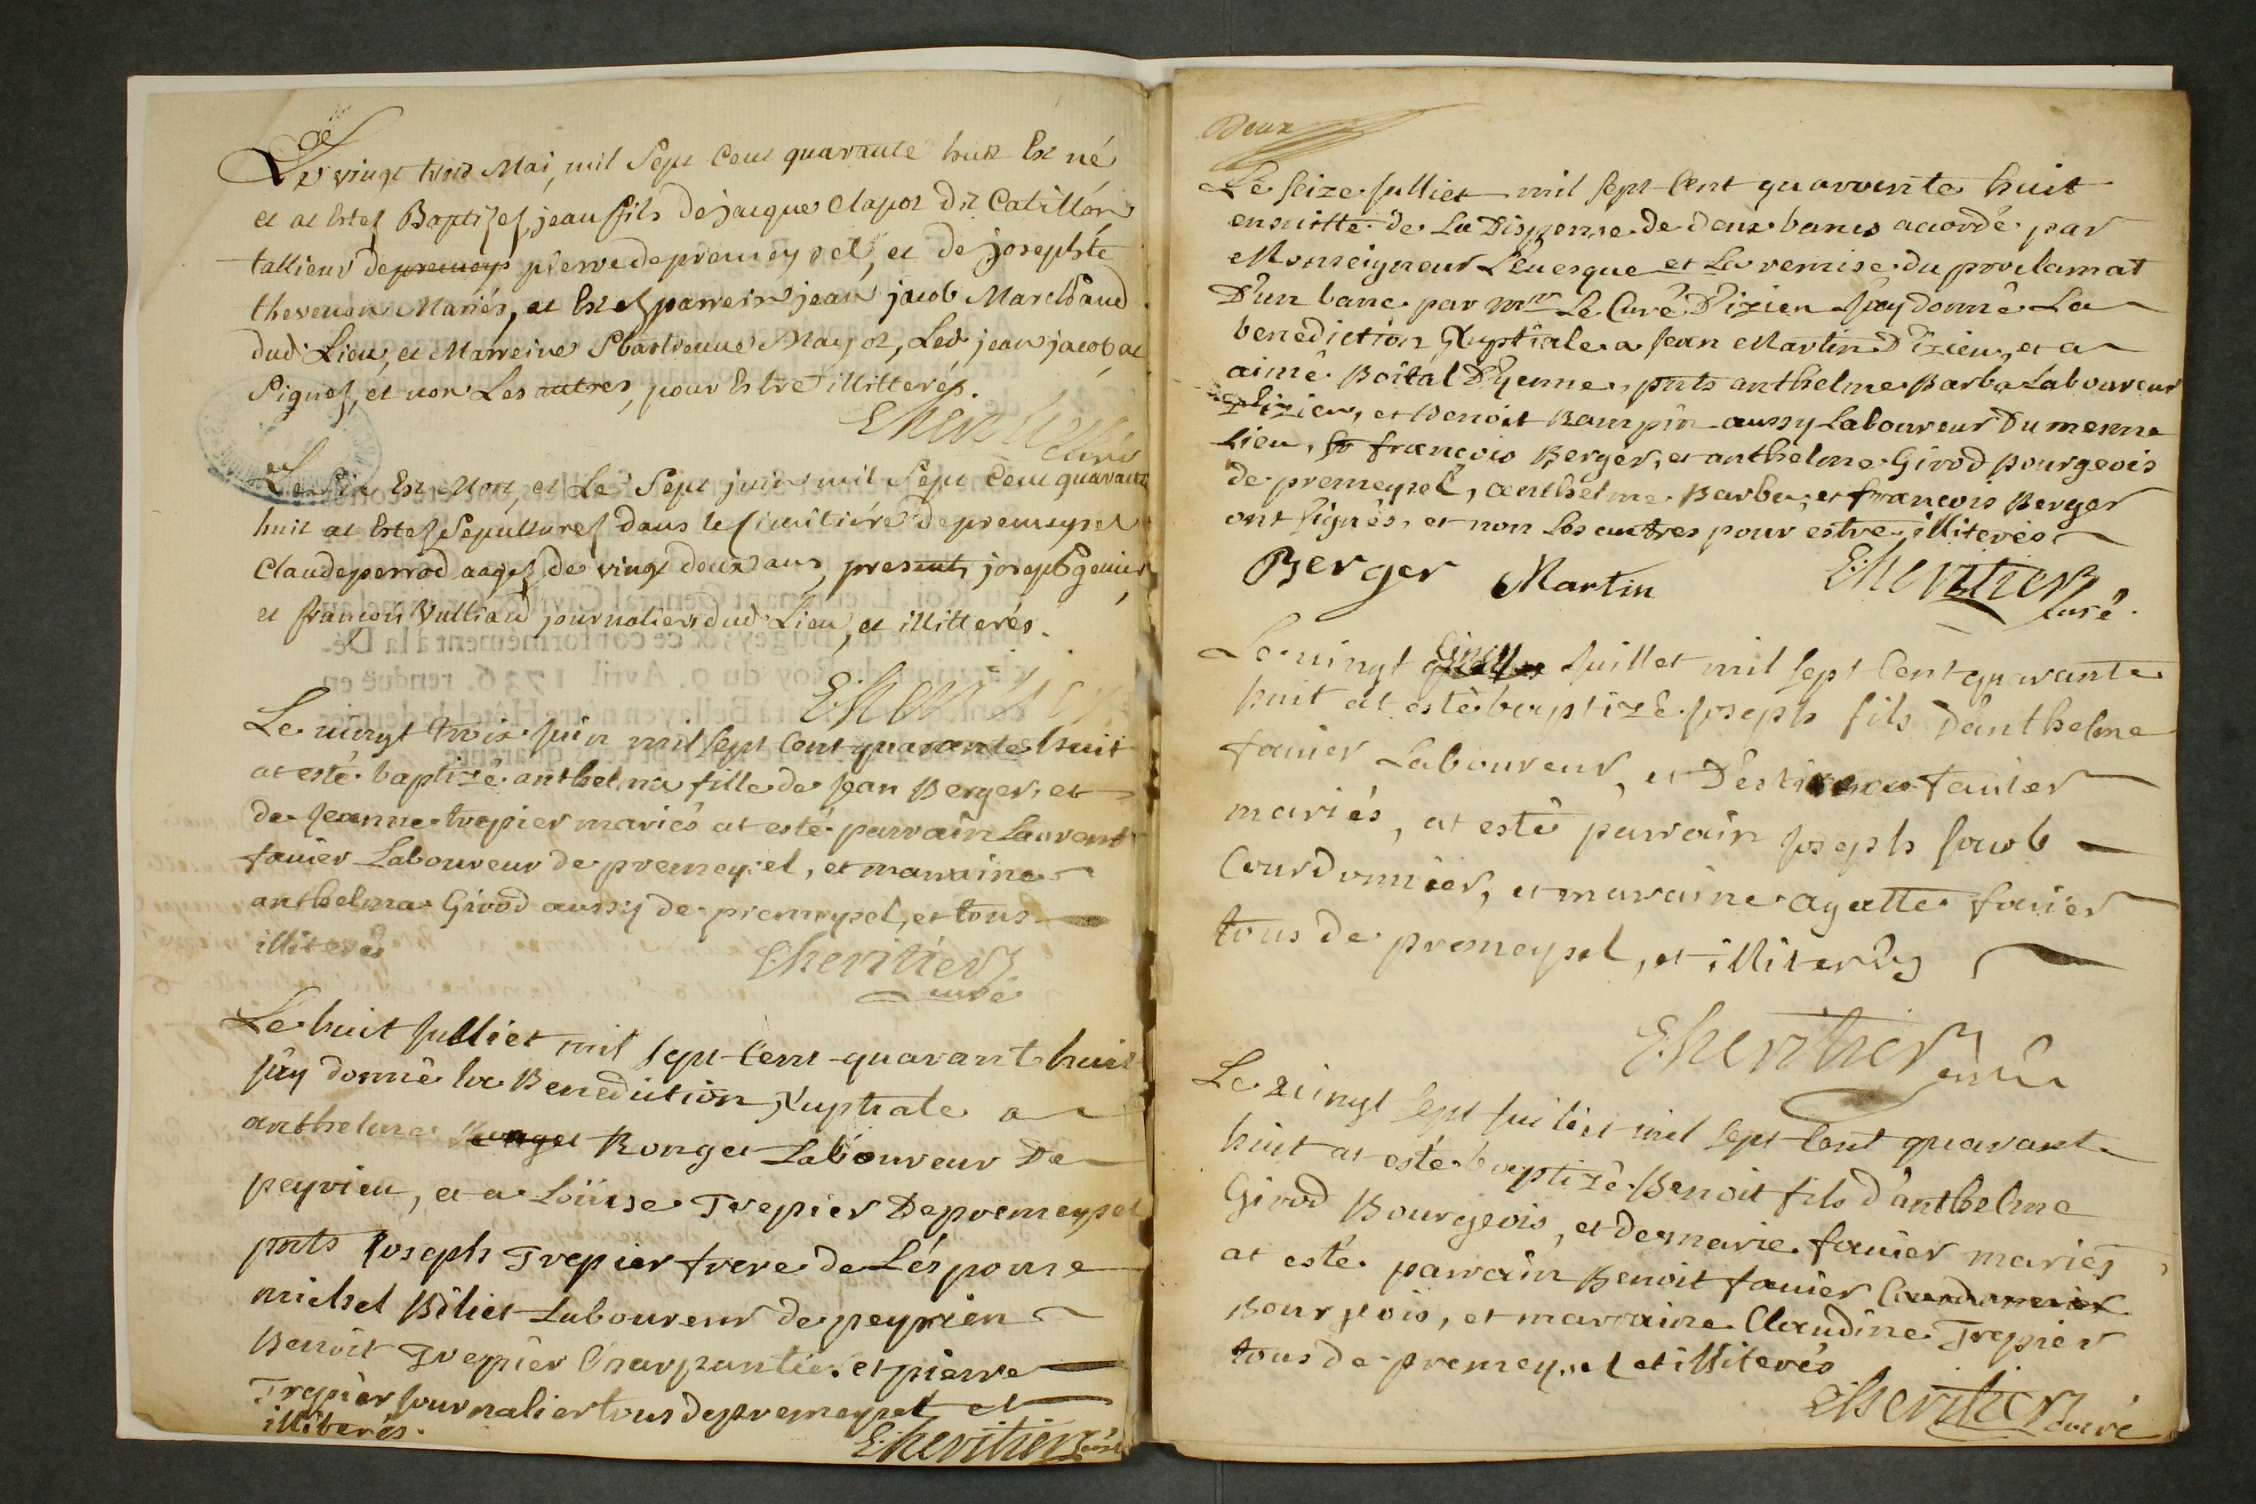 Le vingt trois Mai, mil Sept Cent quarante huit Est né
et at Esté Baptisé, jean fils de jacque Clapot dit Catillon
tallieur de premeys pierre de premeysel, et de josephte
thevenon Mariés, at Esté parrein jean jacob Marchand
dud Lieu, et Marreine Sbastienne Maejot, Led jean jacob at
Signé, et non Les autres, pour Estre illitterés.
E. heritier
Curé
Le Six Est Mort, et Le Sept juin mil Sept Cent quarante
huit at Esté Sepulturé dans le Simitiére de premeysel
Claude perrod aagé de vingt deux ans, presents joseph genier
et francois Vulliaud journaliers dud Lieu, et illitterés.
E. heritier
Le vingt trois juin mil sept Cent quarante huit
at esté baptizé anthelma fille de jean Berger, et
de jeanne trepier mariés at esté parrain Laurent
fauier Laboureur de premeysel, et marraine
anthelma Girod aussy de premeysel, et tous
illiterés
E. heritier
curé
Le huit julliet mil sept Cent quarant huit
j'ay donné la Benediction Nuptiale a
anthelme Ronget Laboureur De
peyrieu, et a Loüise Trepier De premeysel
pnts Joseph Trepier frere de L'ésponse
michel Biliet Laboureur de peyrieu
Benoit Trepier Charpantier et pierre
Trepier journalier tous de premeysel et
illiterés.
E. heritier curé
Deux
Le seize julliet mil sept Cent quarante huit
ensuitte de La Dispense de deux bancs acordé par
Monseigneur L'euesque et La remise du proclamat
D'un banc par mr Le Curé D'izieu j'ay donné La
benediction Nuptiale a jean Martin D'izieu, et a
aimé Boital D'yenne, pnts anthelme Barba Laboureur
D'izieu, et Benoit Rampin aussy Laboureur Du mesme
Lieu, francois Berger, et anthelme Girod bourgeois
de premeysel, anthelme Barba, et francois Berger
ont signés, et non Les autres pour estre illiterés
Berger Martin E. heritier
curé
Le vingt Cinq juillet mil sept Cent quarante
huit at esté baptizé joseph fils D'anthelme
fauier Laboureur, et D'estienna fauier
mariés, at esté parrain joseph jacob
Courdonnier, et maraine agatte fauier
tous de premeysel, et illiterés
E. heritier curé
Le vingt sept juillet mil sept Cent quarant
huit at esté baptizé Benoit fils d'anthelme
Girod Bourgeois, et de marie fauier mariés,
at esté parrain Benoit fauier Courdonnier
Bourgeois, et marraine Claudine Trepier
tous de premeysel et illiterés
E. heritier curé